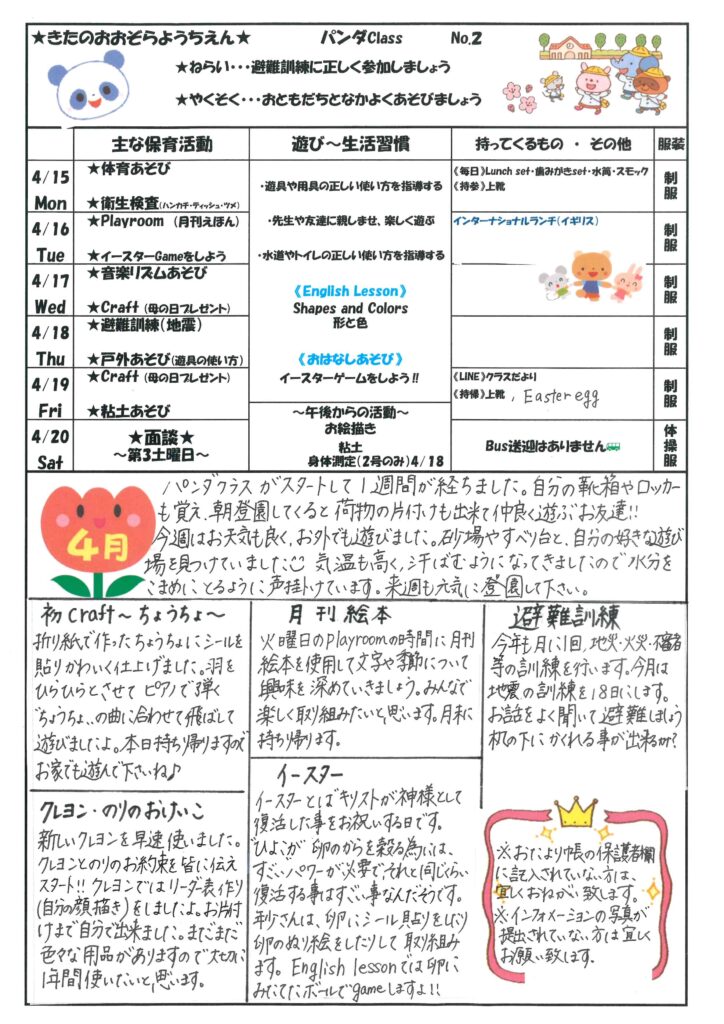 ★きたのおおぞらようちえん★ パンダClass No.2
★ねらい・・・避難訓練に正しく参加しましょう
★やくそく・・・おともだちとなかよくあそびましょう
主な保育活動 遊び~生活習慣 持ってくるもの ・ その他 服装
4/15 Mon
★体育あそび
★衛生検査(ハンカチ・ティッシュ・ツメ)
4/16 Tue
★Playroom (月刊えほん)
★イースターGameをしよう
4/17 Wed
★音楽リズムあそび
★Craft (母の日プレゼント)
4/18 Thu
★避難訓練(地震)
★戸外あそび(遊具の使い方)
4/19 Fri
★Craft (母の日プレゼント)
★粘土あそび
4/20 Sat
★面談★
~第3土曜日~
・遊具や用具の正しい使い方を指導する
・先生や友達に親しませ、楽しく遊ぶ
・水道やトイレの正しい使い方を指導する
《English Lesson》
Shapes and Colors
形と色
《おはなしあそび》
イースターゲームをしよう!!
~午後からの活動~
お絵描き
粘土
身体測定(2号のみ)4/18
《毎日》Lunch set・歯みがきset・水筒・スモック
《持参》上靴
インターナショナルランチ(イギリス)
《LINE》クラスだより
《持帰》上靴 , Easter egg
Bus送迎はありません
制服
制服
制服
制服
制服
体操服
4月
パンダクラスがスタートして1週間が経ちました。自分の靴箱やロッカー
も覚え、朝登園してくると荷物の片付けも出来て仲良く遊ぶお友達!!
今週はお天気も良く、お外でも遊びました。砂場やすべり台と、自分の好きな遊び
場を見つけていました☺ 気温も高く、汗ばむようになってきましたので水分を
こまめにとるように声掛けています。来週も元気に登園して下さい。
初craft~ちょうちょ~
折り紙で作ったちょうちょにシールを
貼りかわいく仕上げました。羽を
ひらひらとさせて ピアノで弾く
"ちょうちょ"の曲に合わせて飛ばして
遊びましたよ。本日持ち帰りますので
お家でも遊んで下さいね♪
月刊絵本
火曜日のplayroomの時間に月刊
絵本を使用して文字や季節について
興味を深めていきましょう。みんなで
楽しく取組みたいと思います。月末に
持ち帰ります。
避難訓練
今年も月に1回、地災・火災・不審者
等の訓練を行います。今月は
地震の訓練を18日にします。
お話をよく聞いて避難しましょう
机の下にかくれる事が出来るかな?
クレヨン・のりのおけいこ
新しいクレヨンを早速使いました。
クレヨンとのりのお約束を皆に伝え
スタート!! クレヨンではリーダー表作り
(自分の顔描き)をしましたよ。お片付
けまで自分で出来ました。まだまだ
色々な用品がありますので大切に
1年間使いたいと思います。
イースター
イースターとはキリストが神様として
復活した事をお祝いする日です。
ひよこが卵のからを穀る為には、
すごいパワーが必要でそれと同じくらい
復活する事はすごい事なんだそうです。
年少さんは、卵にシール貼りをしたり
卵のぬり絵をしたりして取り組み
ます。English lessonでは卵に
みたてたボールでgameしますよ!!
※おたより帳の保護者欄
に記入されていない方は、
宜しくおねがい致します。
※インフォメーションの写真が
提出されていない方は宜しく
お願い致します。